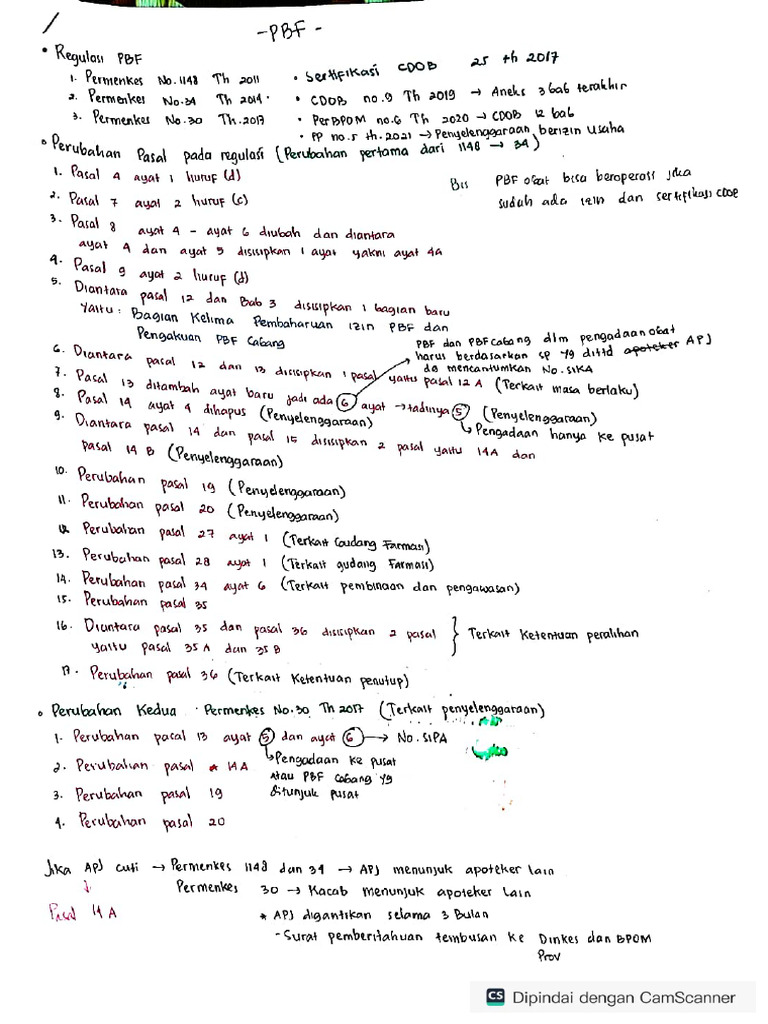 - PBF -
• Regulasi PBF
1. Permenkes No. 1148 Th 2011
2. Permenkes No. 34 Th 2014
3. Permenkes No. 30 Th. 2017
• Sertifikasi CDOB 25 th 2017
• CDOB no. 9 Th 2019 → Aneks 3 bab terakhir
• PerBPOM no. 6 Th 2020 → CDOB 12 bab
• PP no. 5 th. 2021 → Penyelenggaraan berizin usaha
• Perubahan Pasal pada regulasi (Perubahan pertama dari 1148 → 34)
Bis PBF obat bisa beroperasi jika
sudah ada izin dan sertifikasi CDOB
1. Pasal 4 ayat 1 huruf (d)
2. Pasal 7 ayat 2 huruf (c)
3. Pasal 8 ayat 4 - ayat 6 diubah dan diantara
ayat 4 dan ayat 5 disisipkan 1 ayat yakni ayat 4A
4. Pasal 9 ayat 2 huruf (d)
5. Diantara pasal 12 dan Bab 3 disisipkan 1 bagian baru
yaitu : Bagian Kelima Pembaharuan izin PBF dan
Pengakuan PBF Cabang
PBF dan PBF cabang dlm pengadaan obat
harus berdasarkan SP yg dittd apoteker APJ
dg mencantumkan No. SIKA
6. Diantara pasal 12 dan 13 disisipkan 1 pasal yaitu pasal 12 A (Terkait masa berlaku)
7. Pasal 13 ditambah ayat baru jadi ada 6 ayat → tadinya 5 (Penyelenggaraan)
↳ Pengadaan hanya ke pusat
8. Pasal 14 ayat 4 dihapus (Penyelenggaraan)
9. Diantara pasal 14 dan pasal 15 disisipkan 2 pasal yaitu 14A dan
pasal 14 B (Penyelenggaraan)
10. Perubahan pasal 19 (Penyelenggaraan)
11. Perubahan pasal 20 (Penyelenggaraan)
12. Perubahan pasal 27 ayat 1 (Terkait Gudang Farmasi)
13. Perubahan pasal 28 ayat 1 (Terkait gudang Farmasi)
14. Perubahan pasal 34 ayat 6 (Terkait pembinaan dan pengawasan)
15. Perubahan pasal 35
16. Diantara pasal 35 dan pasal 36 disisipkan 2 pasal
yaitu pasal 35 A dan 35 B
} Terkait Ketentuan peralihan
17. Perubahan pasal 36 (Terkait Ketentuan penutup)
• Perubahan Kedua Permenkes No. 30 Th 2017 (Terkait penyelenggaraan)
1. Perubahan pasal 13 ayat 5 dan ayat 6 → No. SIPA
↳ Pengadaan ke pusat
atau PBF Cabang yg
ditunjuk pusat
2. Perubahan pasal 14 A
3. Perubahan pasal 19
4. Perubahan pasal 20
Jika APJ cuti → Permenkes 1148 dan 34 → APJ menunjuk apoteker lain
↓
Pasal 14 A
Permenkes 30 → Kacab menunjuk apoteker lain
* APJ digantikan selama 3 Bulan
- Surat pemberitahuan tembusan ke Dinkes dan BPOM
Prov
CS Dipindai dengan CamScanner